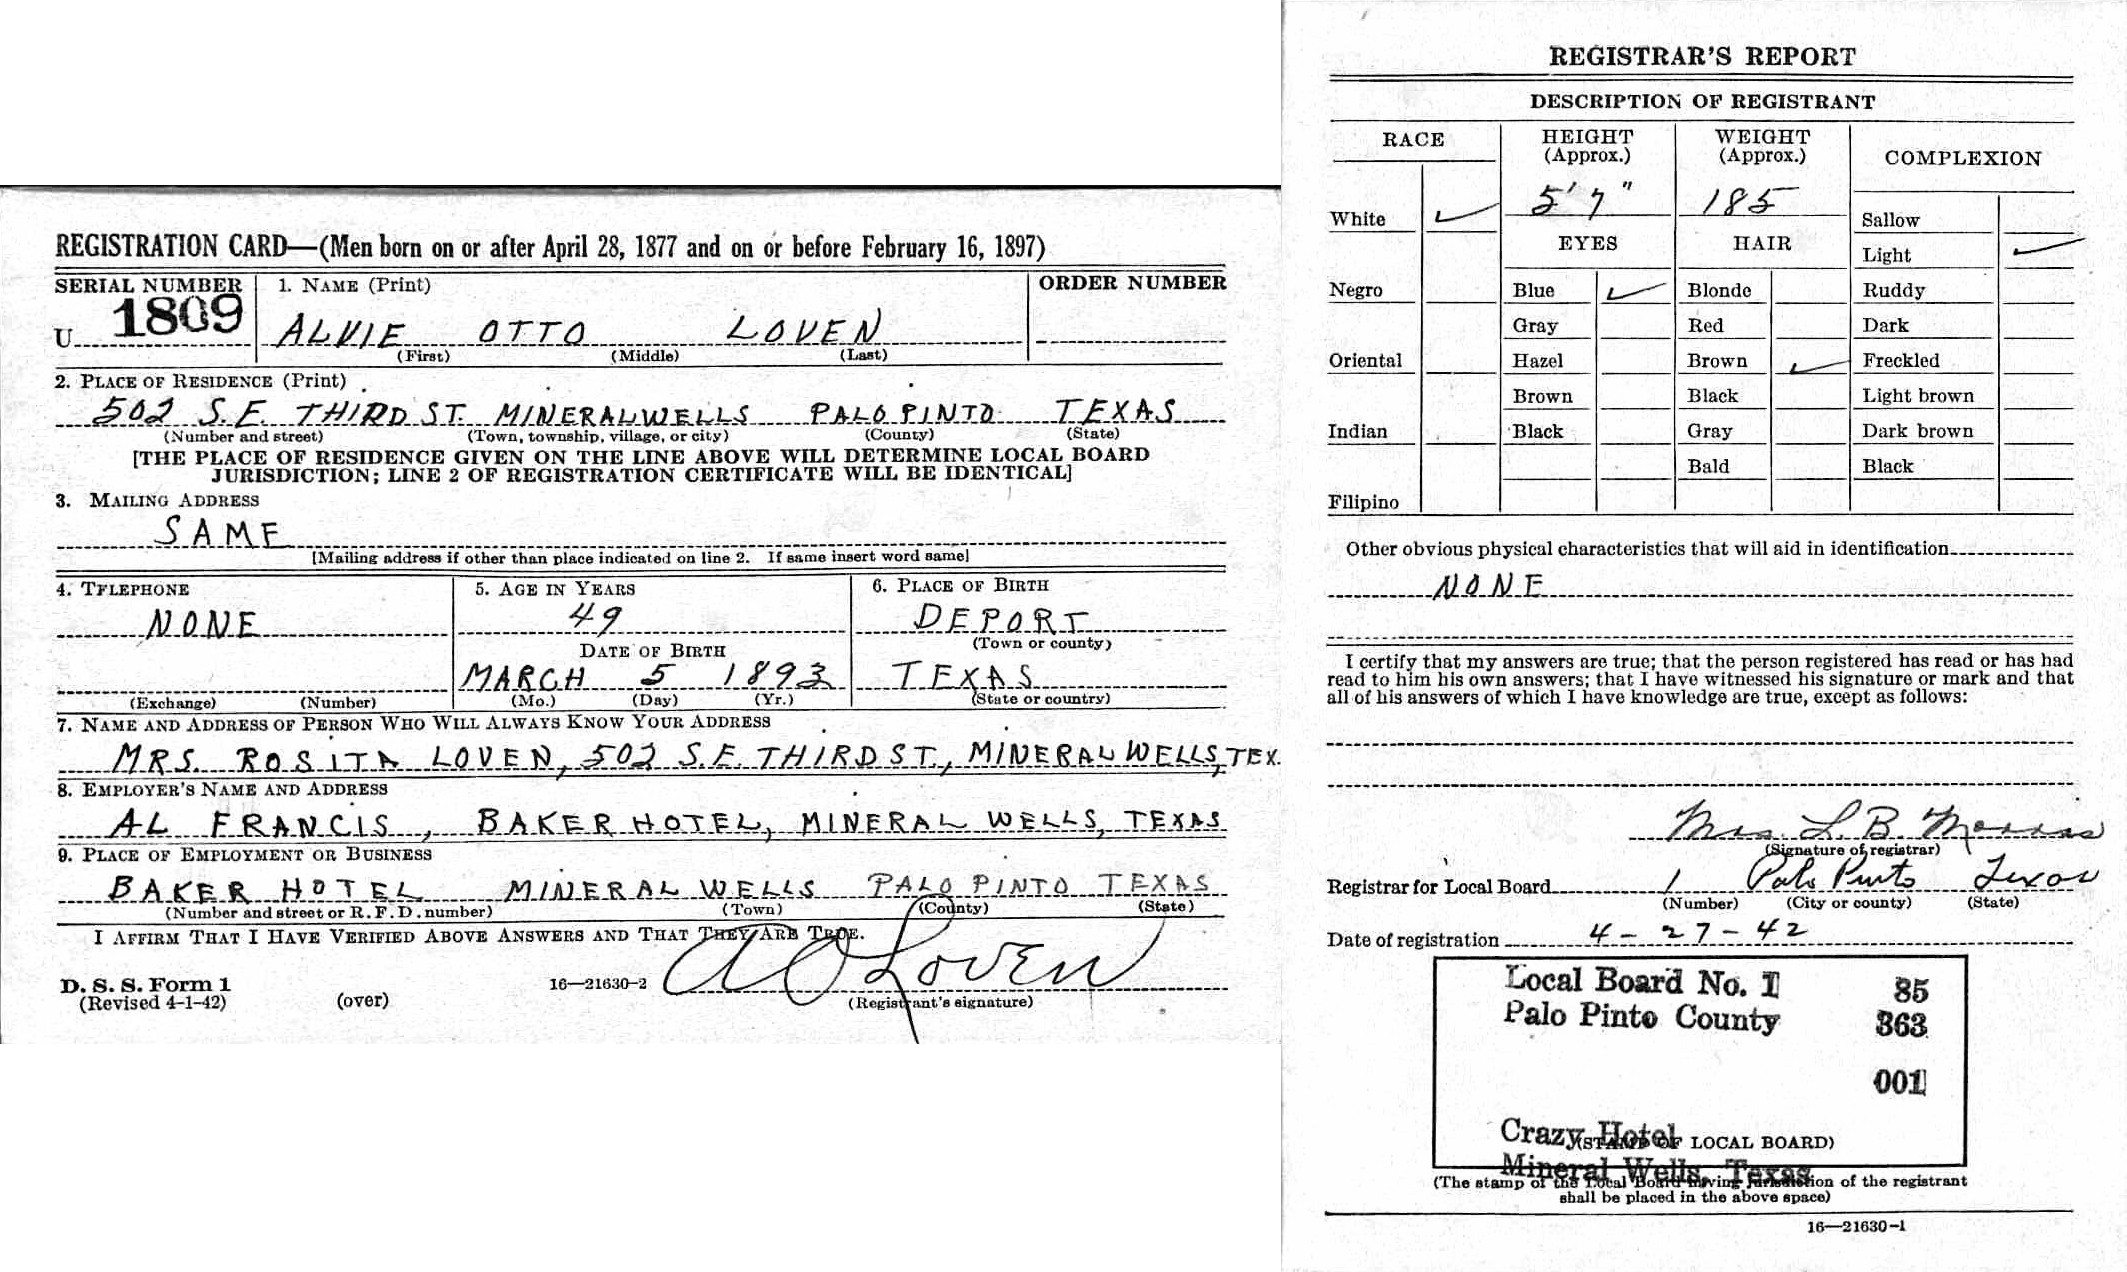 REGISTRATION CARD—(Men born on or after April 28, 1877 and on or before February 16, 1897)
SERIAL NUMBER
1. NAME (Print)
ORDER NUMBER
U 1809
ALVIE OTTO LOVEN
(First) (Middle) (Last)
2. PLACE OF RESIDENCE (Print)
502 S.E. THIRD ST. MINERAL WELLS PALO PINTO TEXAS
(Number and street) (Town, township, village, or city) (County) (State)
[THE PLACE OF RESIDENCE GIVEN ON THE LINE ABOVE WILL DETERMINE LOCAL BOARD
JURISDICTION; LINE 2 OF REGISTRATION CERTIFICATE WILL BE IDENTICAL]
3. MAILING ADDRESS
SAME
[Mailing address if other than place indicated on line 2. If same insert word same]
4. TELEPHONE
5. AGE IN YEARS
6. PLACE OF BIRTH
NONE
49
DEPORT
(Town or county)
DATE OF BIRTH
MARCH 5 1893
TEXAS
(Exchange) (Number) (Mo.) (Day) (Yr.) (State or country)
7. NAME AND ADDRESS OF PERSON WHO WILL ALWAYS KNOW YOUR ADDRESS
MRS. ROSITA LOVEN, 502 S.E. THIRD ST., MINERAL WELLS, TEX.
8. EMPLOYER'S NAME AND ADDRESS
AL FRANCIS, BAKER HOTEL, MINERAL WELLS, TEXAS
9. PLACE OF EMPLOYMENT OR BUSINESS
BAKER HOTEL MINERAL WELLS PALO PINTO TEXAS
(Number and street or R. F. D. number) (Town) (County) (State)
I AFFIRM THAT I HAVE VERIFIED ABOVE ANSWERS AND THAT THEY ARE TRUE.
A O Loven
D. S. S. Form 1
(Revised 4-1-42) (over) 16—21630-2 (Registrant's signature)
REGISTRAR'S REPORT
DESCRIPTION OF REGISTRANT
RACE
HEIGHT (Approx.)
WEIGHT (Approx.)
COMPLEXION
5' 7" 185
White ✓
Sallow
EYES HAIR
Light ✓
Negro Blue ✓ Blonde Ruddy
Gray Red Dark
Oriental Hazel Brown ✓ Freckled
Brown Black Light brown
Indian Black Gray Dark brown
Bald Black
Filipino
Other obvious physical characteristics that will aid in identification
NONE
I certify that my answers are true; that the person registered has read or has had
read to him his own answers; that I have witnessed his signature or mark and that
all of his answers of which I have knowledge are true, except as follows:
Mrs. L. B.
(Signature of registrar)
Registrar for Local Board 1 Palo Pinto Texas
(Number) (City or county) (State)
Date of registration 4-27-42
Local Board No. 1 85
Palo Pinto County 363
001
Crazy Hotel
(STAMP OF LOCAL BOARD)
Mineral Wells, Texas
(The stamp of the Local Board having jurisdiction of the registrant
shall be placed in the above space)
16—21630-1